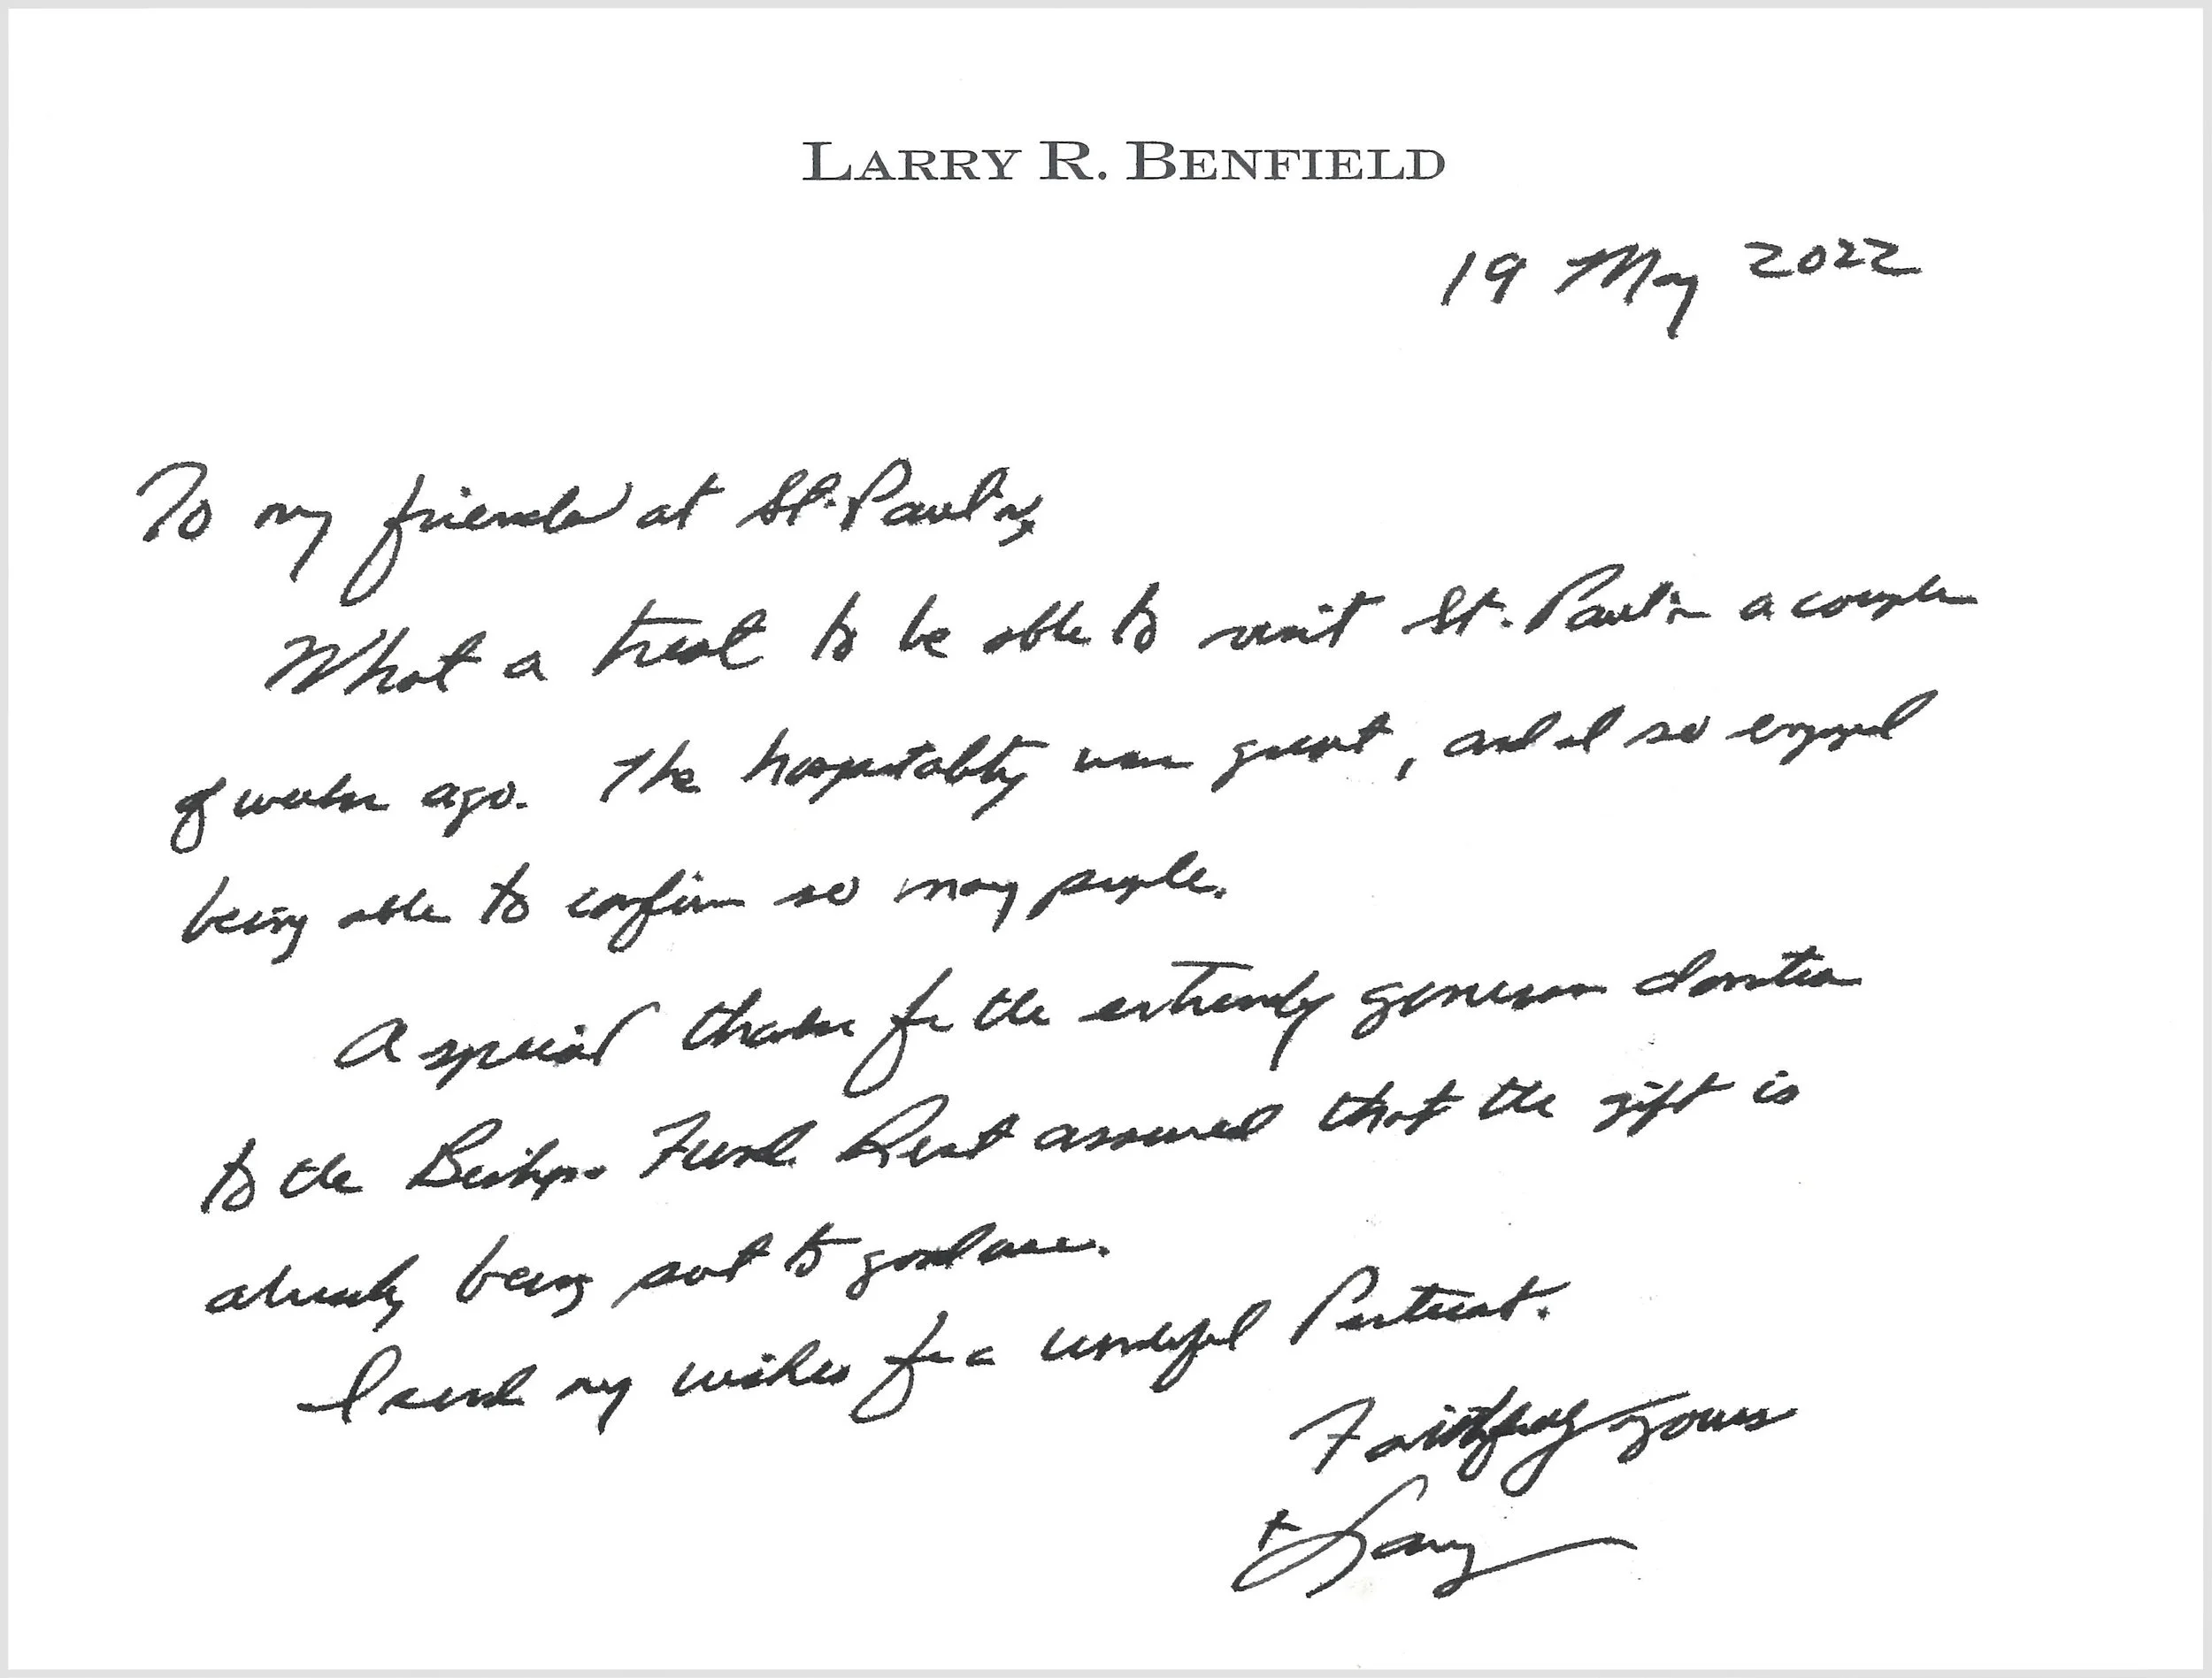 LARRY R. BENFIELD
19 May 2022
To my friends at St. Paul's,
What a treat to be able to visit St. Paul's a couple
of weeks ago. The hospitality was great, and I so enjoyed
being able to confirm so many people.
A special thanks for the extremely generous donation
to the Bishop's Fund. Rest assured that the gift is
already being put to good use.
I send my wishes for a wonderful Pentecost.
Faithfully yours
+Larry